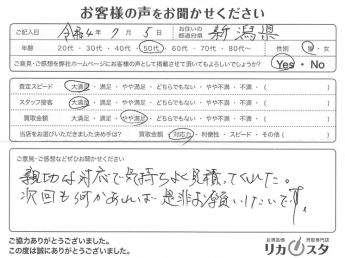 お客様の声をお聞かせください
ご記入日 令和4年 7月 5日 お住いの都道府県 新潟県
年齢 20代・30代・40代・50代・60代・70代・80代〜 性別 男・女
ご意見・ご感想を弊社ホームページにお客様の声として掲載させて頂いてもよろしいでしょうか? Yes・No
査定スピード 大満足・満足・やや満足・どちらでもない・やや不満・不満・( )
スタッフ接客 大満足・満足・やや満足・どちらでもない・やや不満・不満・( )
買取金額 大満足・満足・やや満足・どちらでもない・やや不満・不満・( )
当店をお選びいただきました決め手は? 買取金額・対応力・利便性・スピード・その他( )
ご意見・ご感想などぜひお聞かせください
親切な対応で気持ちよく見積してくれた。
次回も何かあれば是非お願いしたいです。
ご協力ありがとうございました。
この度は誠にありがとうございました。
お酒高価買取専門店
リカスタ